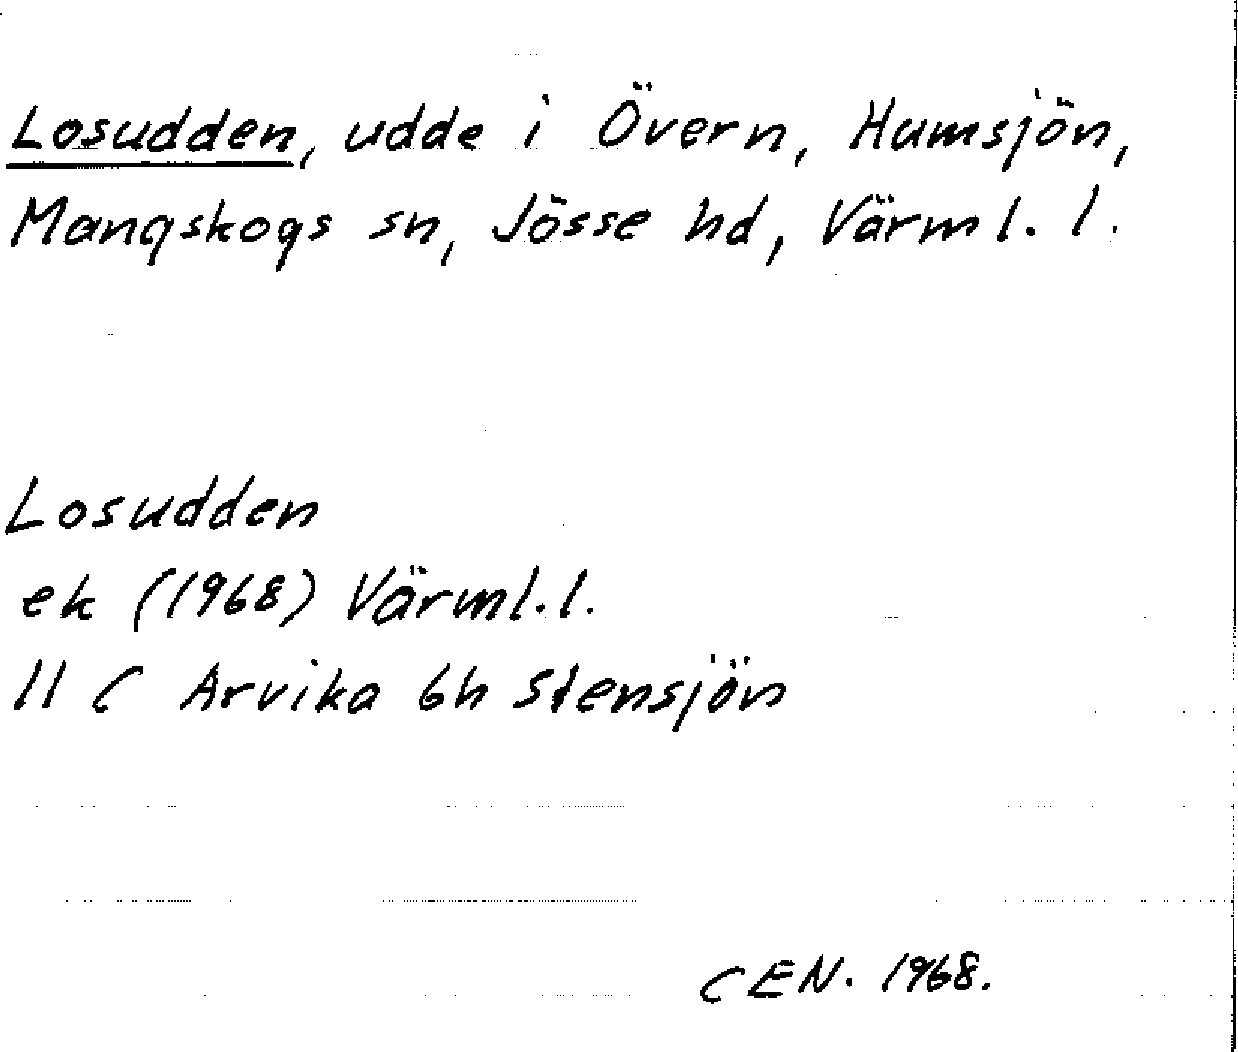 Losudden, udde i Övern, Humsjön,
Mangskogs sn, Jösse hd, Värml. l.
Losudden
ek (1968) Värml. l.
11 C Arvika 6h Stensjön
CEN. 1968.